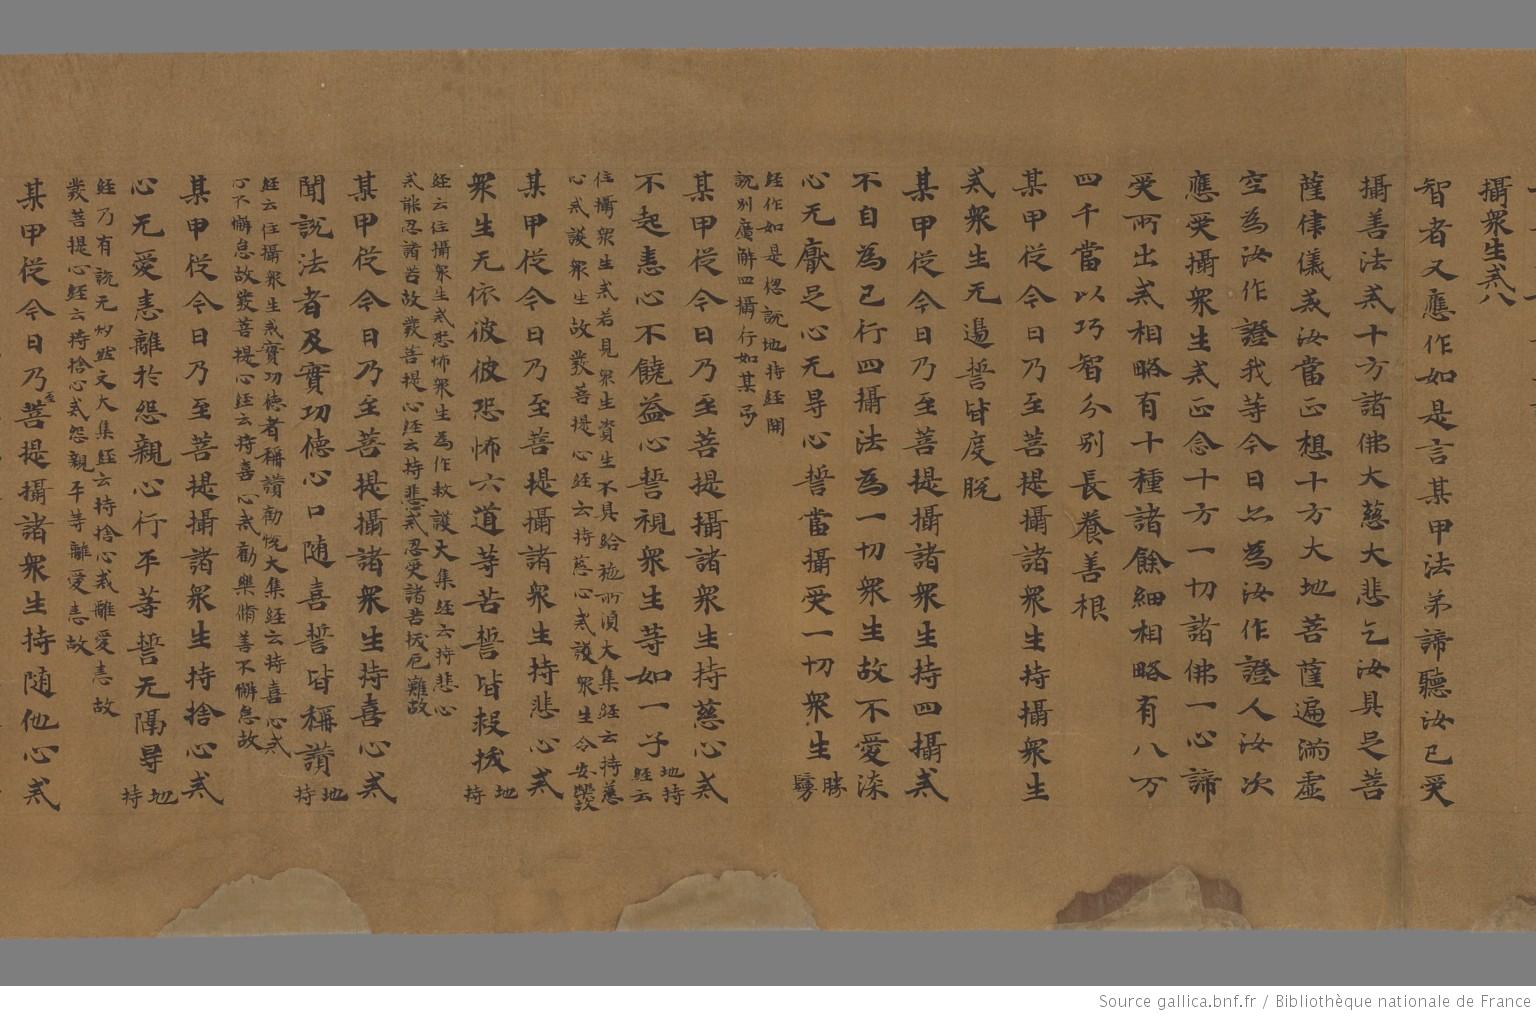 攝衆生戒八
智者又應作如是言某甲法弟諦聽汝已受
攝善法戒十方諸佛大慈大悲乞汝具足菩
薩律儀戒汝當正想十方大地菩薩遍滿虛
空為汝作證我等今日亦為汝作證人汝次
應受攝衆生戒正念十方一切諸佛一心諦
受所出戒相略有十種諸餘細相略有八万
四千當以巧智分別長養善根
某甲從今日乃至菩提攝諸衆生持攝衆生
戒衆生无邊誓皆度脱
某甲從今日乃至菩提攝諸衆生持四攝戒
不自為已行四攝法為一切衆生故不愛染
心无厭足心无㝵心誓當攝受一切衆生勝
鬘
経作如是惣説地持経開
説別廣解四攝行如某
某甲從今日乃至菩提攝諸衆生持慈心戒
不起恚心不饒益心誓視衆生等如一子地持
経云
住攝衆生戒若見衆生資生不具給施所須大集経云持慈
心戒護衆生故發菩提心経云持慈心戒護衆生令安
某甲從今日乃至菩提攝諸衆生持悲心戒
衆生无依彼彼恐怖六道等苦誓皆救拔地
持
経云住攝衆生戒恐怖衆生為作救護大集経云持悲心
戒能忍諸苦故發菩提心経云持悲戒忍受諸苦拔厄難故
某甲從今日乃至菩提攝諸衆生持喜心戒
聞説法者及實功德心口随喜誓皆稱讃地
持
経云住攝衆生戒實功德者稱讃勸悦大集経云持喜心戒
心不懈怠故發菩提心経云持喜心戒勸樂脩善不懈怠故
某甲從今日乃至菩提攝諸衆生持捨心戒
心无愛恚離於怨親心行平等誓无隔㝵地
持
経乃有説无此文大集経云持捨心戒離愛恚故
發菩提心経云持捨心戒怨親平等離愛恚故
某甲從今日乃至菩提攝諸衆生持随他心戒
Source gallica.bnf.fr / Bibliothèque nationale de France